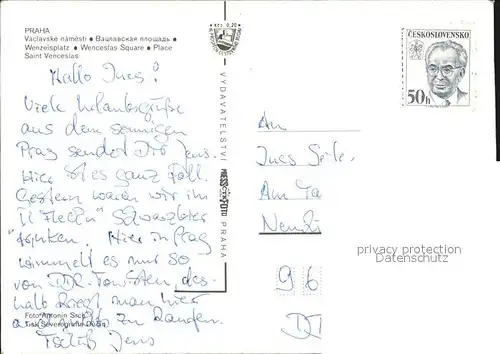 PRAHA
Václavské náměstí • Вацлавская площадь •
Wenzelsplatz • Wenceslas Square • Place
Saint Venceslas
Kčs 0,20
VYDAVATELSTVÍ PRESSFOTO PRAHA
ČESKOSLOVENSKO
50h
Hallo Ines!
Viele Urlaubsgrüße
aus dem sonnigen
Prag sendet Dir Jens.
Hier ist es ganz toll.
Gestern waren wir im
"U Fleků" Schwarzbier
trinken. Hier in Prag
wimmelt es nur so
von DDR-Touristen, des-
halb kriegt man hier
a zu kaufen.
Tschüß Jens
Foto Antonín Srch
Tisk Severografie Děčín
An
Ines
Am
privacy protection
Datenschutz
9 6